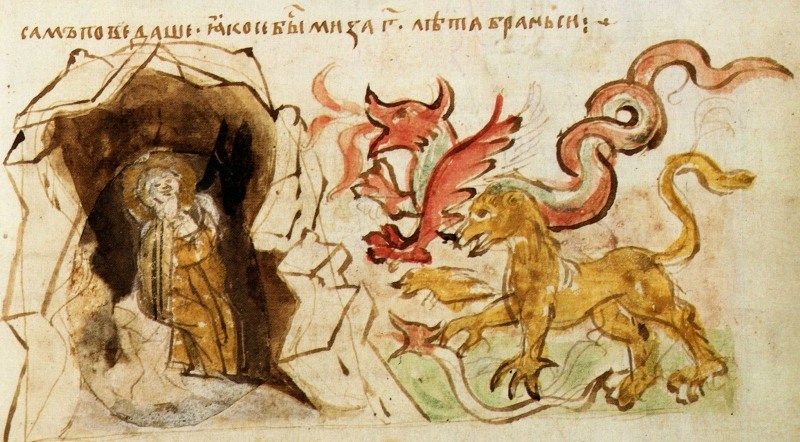 самъ поведаше · ꙗко се бы҇ ми за г҃ · лѣта брань си :~